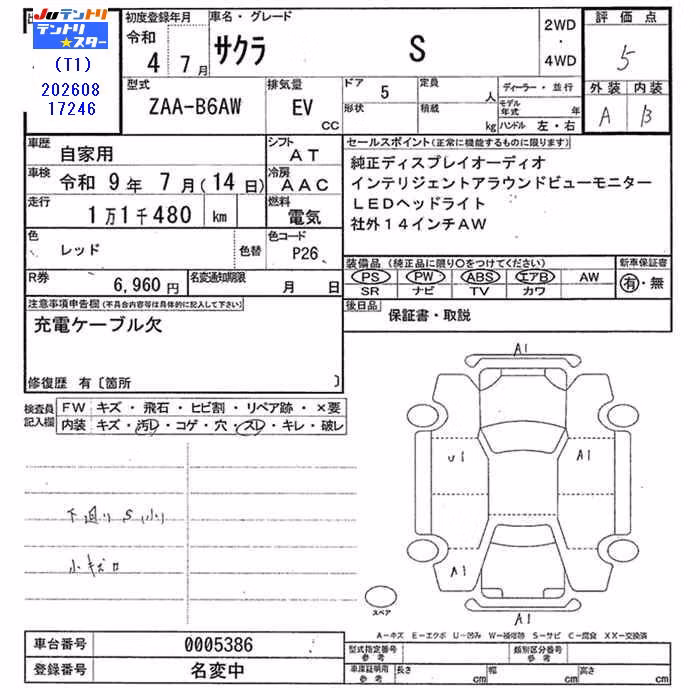 JUテントリ
テントリ★スター
(T1)
202608
17246
初度登録年月
令和
4 7月
車名・グレード
サクラ S
2WD
・
4WD
評価点
5
外装 内装
A B
型式
ZAA-B6AW
排気量
EV
cc
ドア 5
形状
定員 人
積載 kg
ディーラー・並行
モデル年式 年
ハンドル 左・右
車歴 自家用
シフト AT
車検 令和 9年 7月(14日)
冷房 AAC
走行 1万1千480 km
燃料 電気
色 レッド 色替
色コード P26
R券 6,960円
名変通知期限 月 日
セールスポイント(正常に機能するものに限ります)
純正ディスプレイオーディオ
インテリジェントアラウンドビューモニター
LEDヘッドライト
社外14インチAW
装備品(純正品に限り○をつけてください)
PS PW ABS エアB AW
SR ナビ TV カワ
新車保証書
有・無
後日品 保証書・取説
注意事項申告欄(不具合内容等は具体的に記入して下さい)
充電ケーブル欠
修復歴 有〔箇所 〕
検査員記入欄
FW キズ・飛石・ヒビ割・リペア跡・×要
内装 キズ・汚レ・コゲ・穴・スレ・キレ・破レ
下廻りS(小)
小キズロ
A1
U1
A1
A1
A1
スペア
A－キズ E－エクボ U－凹み W－補修跡 S－サビ C－腐食 XX－交換済
車台番号 0005386
登録番号 名変中
型式指定番号 参考
類別区分番号 参考
車庫証明用 参考
長さ cm 幅 cm 高さ cm